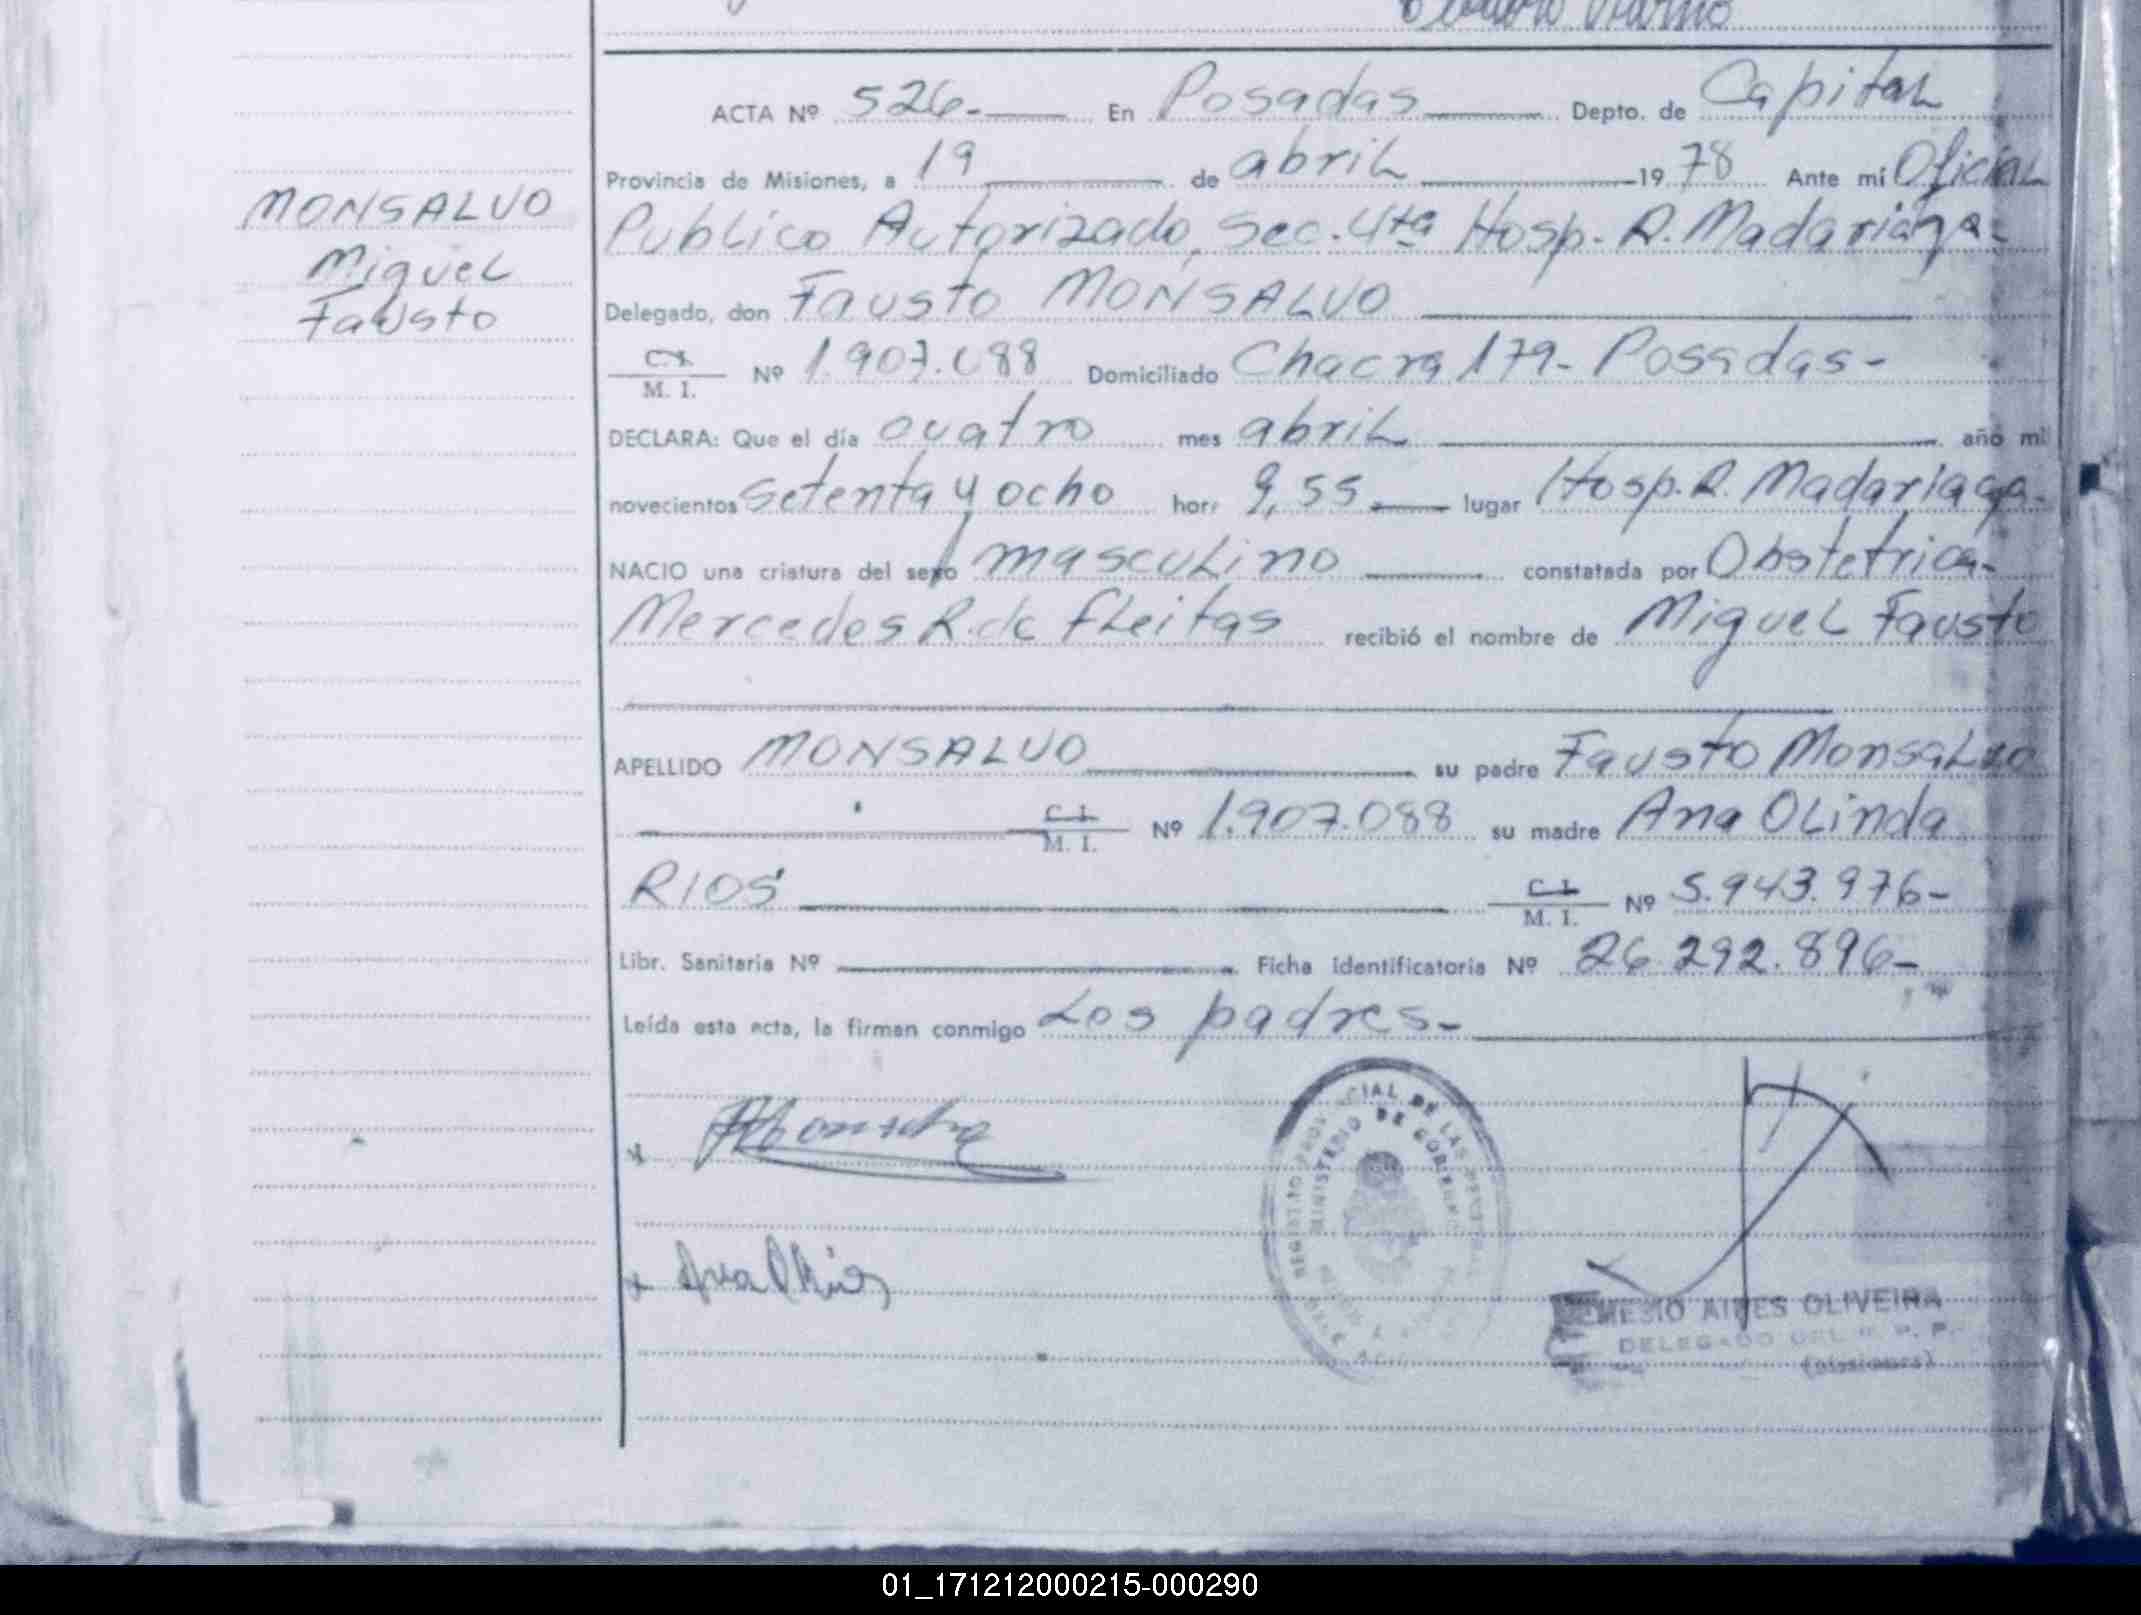 ACTA Nº 526- En Posadas Depto. de Capital
Provincia de Misiones, a 19 de abril 1978 Ante mí Oficial
Publico Autorizado, Sec. 4ta Hosp. R. Madariaga-
Delegado, don Fausto MONSALVO
C.I. M. I. Nº 1.907.088 Domiciliado Chacra 179- Posadas-
DECLARA: Que el día cuatro mes abril año mil
novecientos setenta y ocho hora 9,55 lugar Hosp. R. Madariaga.
NACIO una criatura del sexo masculino constatada por Obstetrica-
Mercedes R. de fleitas recibió el nombre de Miguel Fausto
APELLIDO MONSALVO su padre Fausto Monsalvo
C.I. M. I. Nº 1.907.088 su madre Ana Olinda
RIOS C.I. M. I. Nº 5.943.976-
Libr. Sanitaria Nº Ficha Identificatoria Nº 26.292.896-
Leída esta acta, la firman conmigo Los padres-
MONSALVO
Miguel
Fausto
REGISTRO PROVINCIAL DE LAS PERSONAS
MINISTERIO DE GOBIERNO
AIRES OLIVEIRA
DELEGADO DEL R. P. P.
(Misiones)
01_171212000215-000290